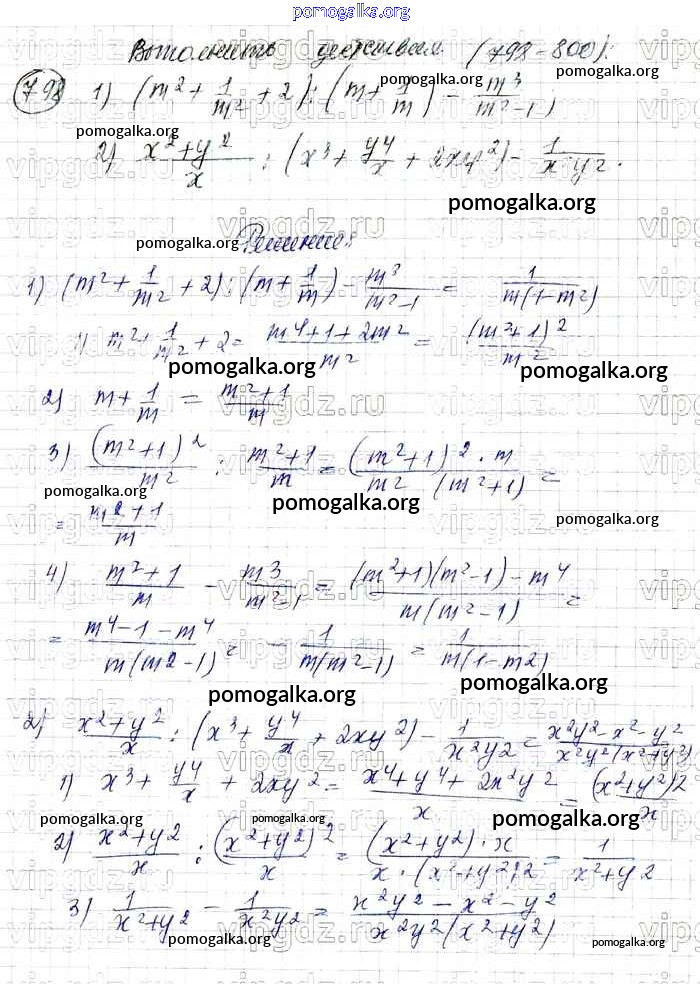 pomogalka.org
Выполнить действия (798-800):
798 1) (m² + 1/m² + 2) : (m + 1/m) - m³/(m²-1)
pomogalka.org
2) (x²+y²)/x : (x³ + y⁴/x + 2xy²) - 1/(x²y²).
pomogalka.org
pomogalka.org
Решение:
1) (m² + 1/m² + 2) : (m + 1/m) - m³/(m²-1) = 1/(m(1-m²))
1) m² + 1/m² + 2 = (m⁴+1+2m²)/m² = (m²+1)²/m²
pomogalka.org pomogalka.org
2) m + 1/m = (m²+1)/m
3) (m²+1)²/m² : (m²+1)/m = ((m²+1)² · m)/(m² (m²+1)) =
pomogalka.org pomogalka.org pomogalka.org
= (m²+1)/m
4) (m²+1)/m - m³/(m²-1) = ((m²+1)(m²-1) - m⁴)/(m(m²-1)) =
= (m⁴-1-m⁴)/(m(m²-1)) = - 1/(m(m²-1)) = 1/(m(1-m²))
pomogalka.org pomogalka.org
2) (x²+y²)/x : (x³ + y⁴/x + 2xy²) - 1/(x²y²) = (x²y²-x²-y²)/(x²y²(x²+y²))
1) x³ + y⁴/x + 2xy² = (x⁴+y⁴+2x²y²)/x = (x²+y²)²/x
pomogalka.org pomogalka.org pomogalka.org
2) (x²+y²)/x : (x²+y²)²/x = ((x²+y²)·x)/(x·(x²+y²)²) = 1/(x²+y²)
3) 1/(x²+y²) - 1/(x²y²) = (x²y²-x²-y²)/(x²y²(x²+y²))
pomogalka.org pomogalka.org pomogalka.org